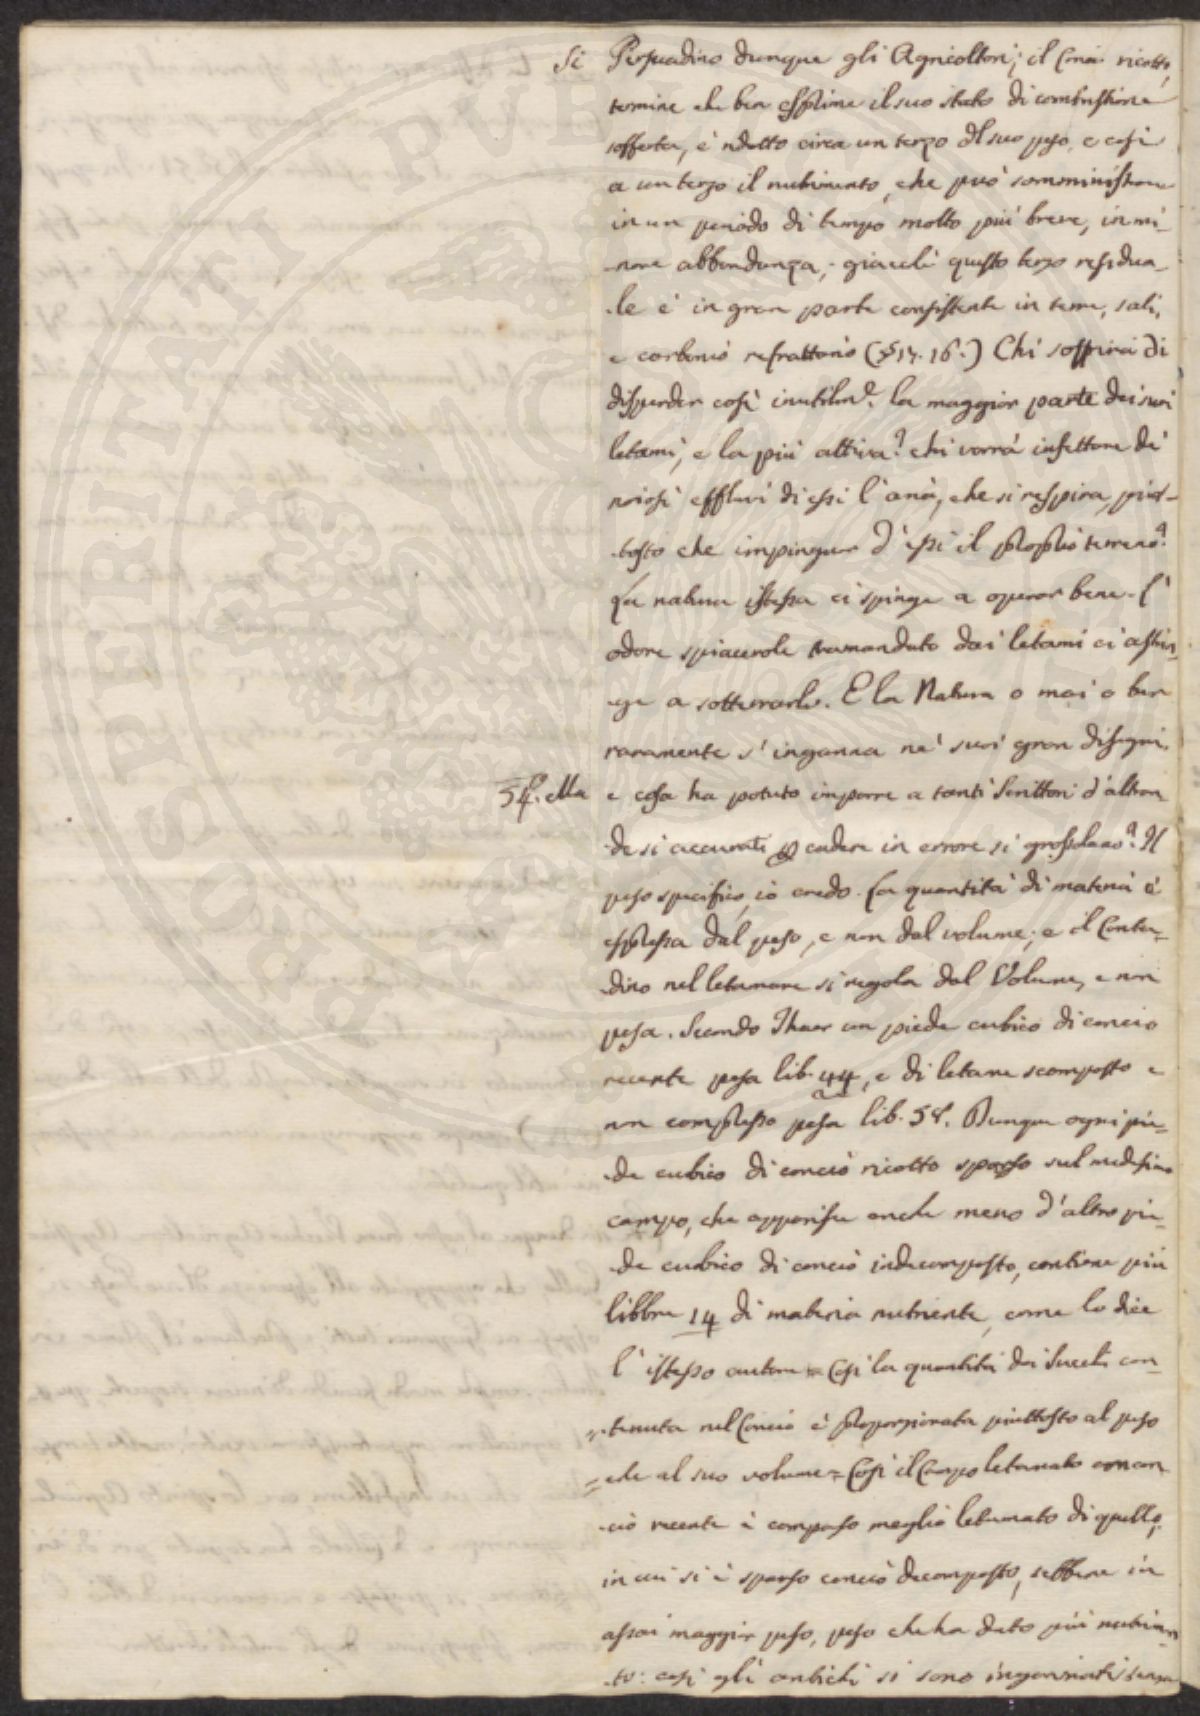 Si Persuadino dunque gli Agricoltori; il Concio ricotto,
termine che ben esprime il suo stato di combustione
sofferta, è ridotto circa un terzo del suo peso, e così
a un terzo il nutrimento, che può somministrare
in un periodo di tempo molto più breve, in mi-
-nore abbondanza; giacchè questo terzo residua-
-le è in gran parte consistente in terre, sali,
e carbonio refrattario (§ 15. 16.) Chi soffrirà di
disperder così inutilme. la maggior parte dei suoi
letami, e la più attiva? chi vorrà infettare de'
noiosi effluvi di essi l'aria, che si respira, piut-
-tosto che impinguar d'essi il proprio terreno?
La natura istessa ci spinge a operar bene. L'
odore spiacevole tramandato dai letami ci astrin-
-ge a sotterrarlo. E la Natura o mai o ben
raramente s'inganna ne' suoi gran disegni.
54. Ma e cosa ha potuto imporre a tanti Scrittori d'altron
-de si accurati p cadere in errore si grossolano? Il
peso specifico, io credo. La quantità di materia è
espressa dal peso, e non dal volume; e il Conta-
-dino nel letamare si regola dal Volume, e non
pesa. Secondo Thaer un piede cubico di concio
recente pesa lib. 44, e di letame scomposto e
non compresso pesa lib. 58. Dunque ogni pie-
-de cubico di concio ricotto sparso sul medesimo
campo, che apparisce anche meno d'altro pie-
-de cubico di concio indecomposto, contiene più
libbre 14 di materia nutriente, come lo dice
l'istesso autore = Così la quantità dei Succhi con
= -tenuta nel Concio è proporzionata piuttosto al peso
= che al suo volume = Così il Campo letamato con con-
-cio recente è comparso meglio letamato di quello,
in cui si è sparso concio decomposto, sebbene in
assai maggior peso, peso che ha dato più nutrimen-
-to: così gli antichi si sono ingannati senza